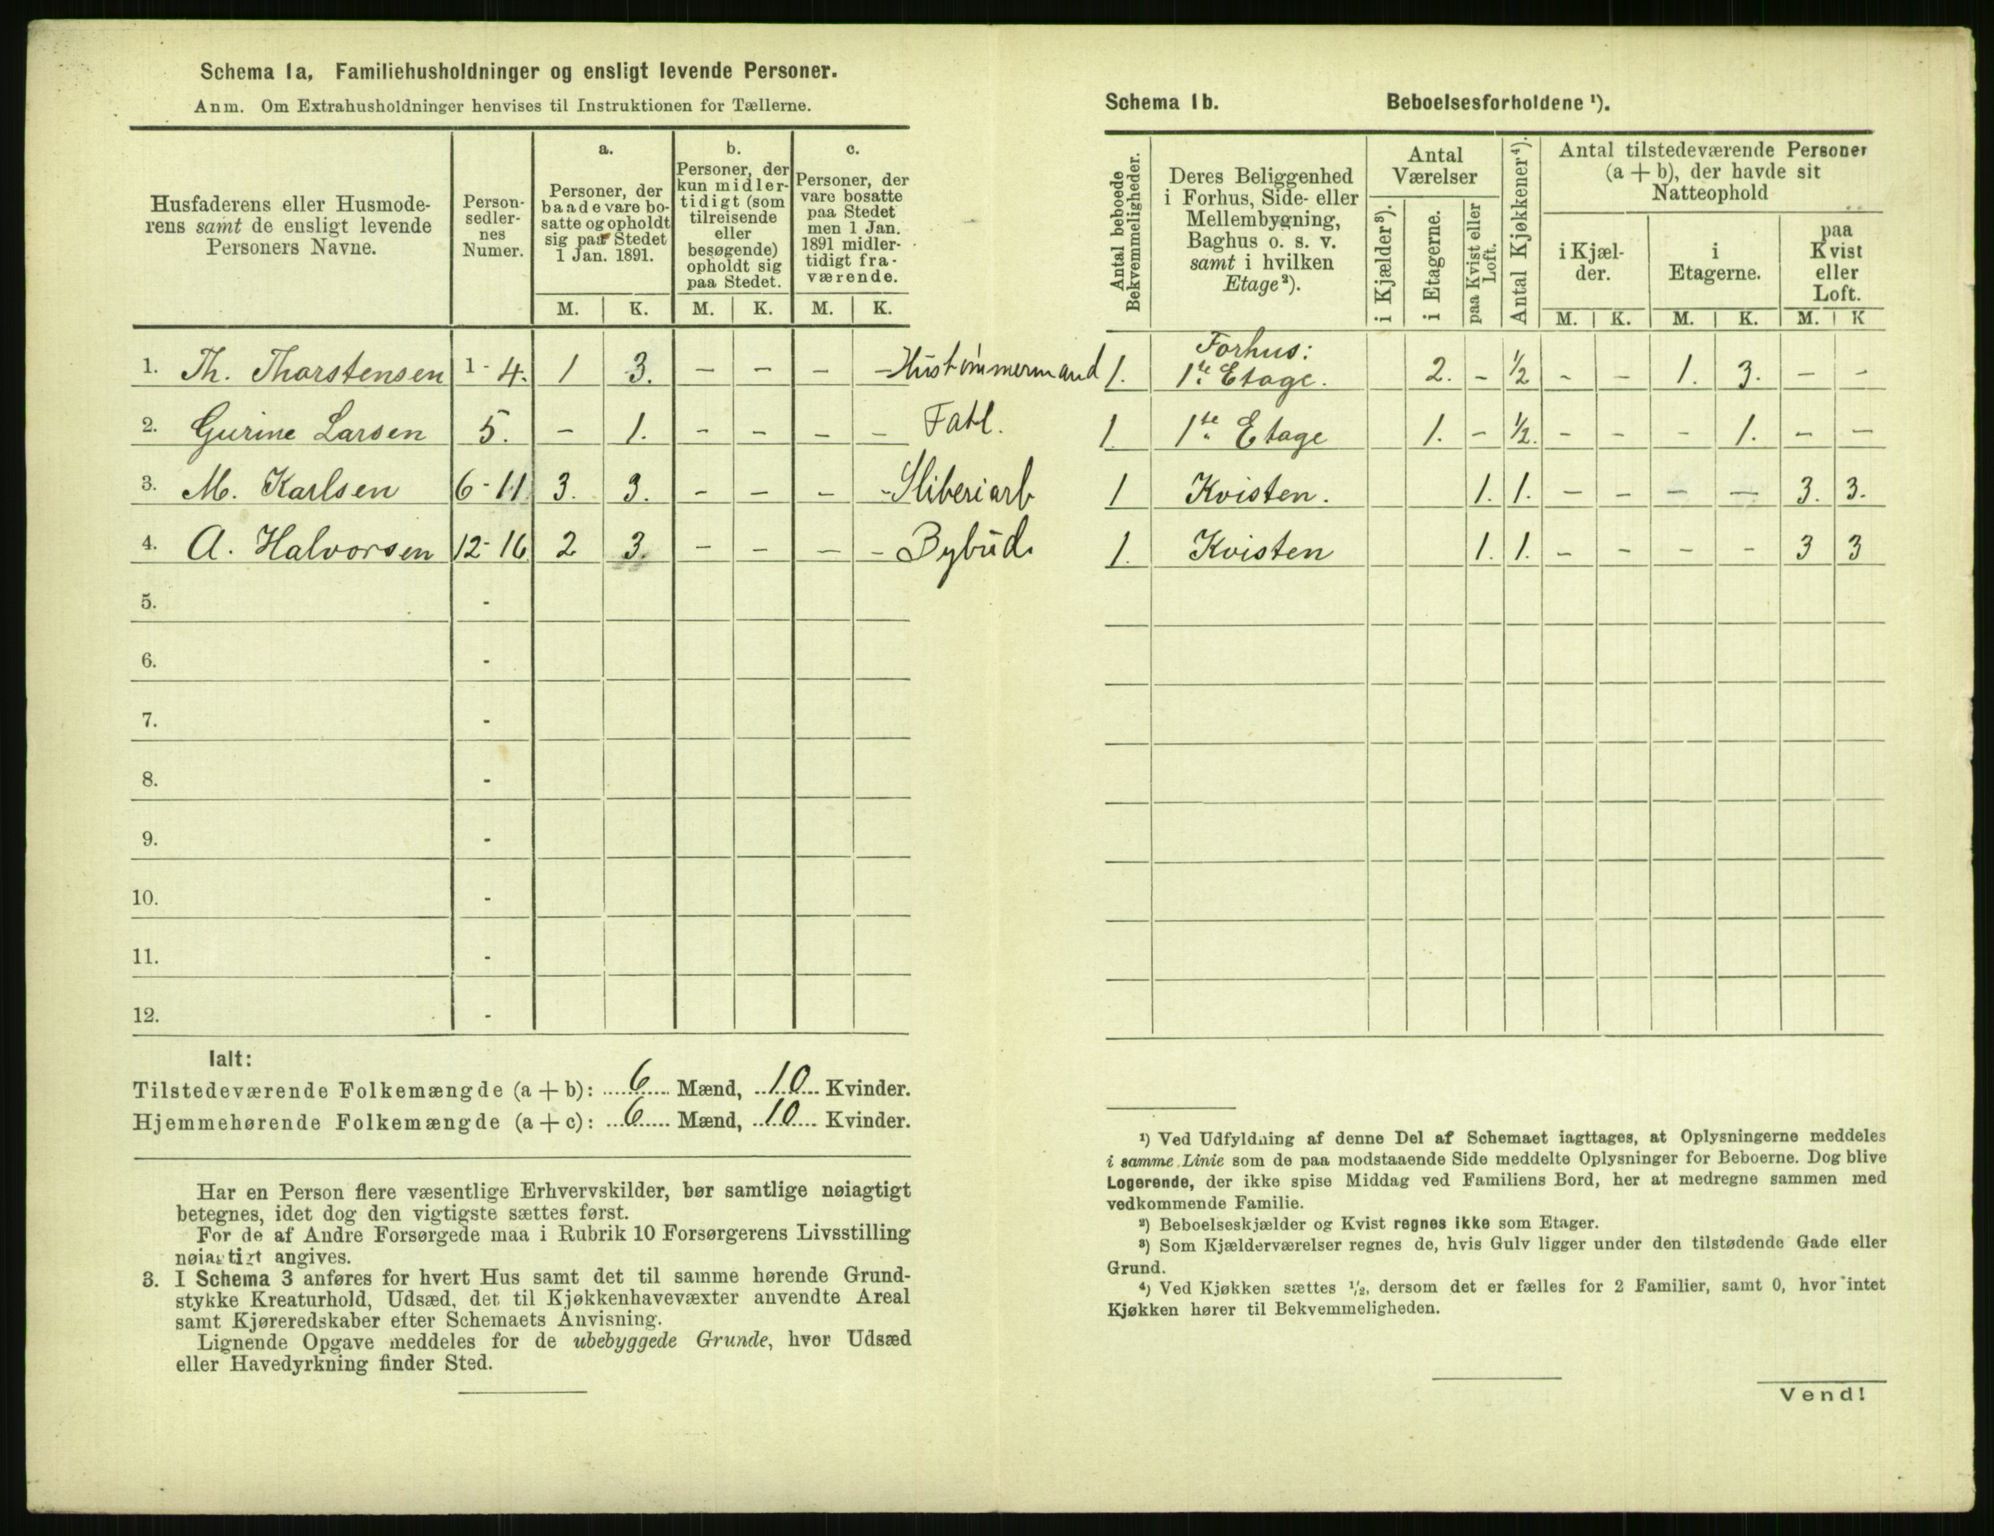 Schema 1a, Familiehusholdninger og ensligt levende Personer.
Anm. Om Extrahusholdninger henvises til Instruktionen for Tællerne.
Husfaderens eller Husmoderens samt de ensligt levende Personers Navne.
Person-sedler-nes Numer.
a. Personer, der baade vare bosatte og opholdt sig paa Stedet 1 Jan. 1891.
b. Personer, der kun midlertidigt (som tilreisende eller besøgende) opholdt sig paa Stedet.
c. Personer, der vare bosatte paa Stedet men 1 Jan. 1891 midlertidigt fraværende.
M. K. M. K. M. K.
1. Th. Thorstensen 1-4. 1 3. - - - - Hustømmermand
2. Gurine Larsen 5. - 1. - - - - Fatl.
3. M. Karlsen 6-11 3. 3. - - - - Sliberiarb
4. A. Halvorsen 12-16 2 3. - - - - Bybud.
5. -
6. -
7. -
8. -
9. -
10. -
11. -
12. -
Ialt:
Tilstedeværende Folkemængde (a + b): 6 Mænd, 10 Kvinder.
Hjemmehørende Folkemængde (a + c): 6 Mænd, 10 Kvinder.
Har en Person flere væsentlige Erhvervskilder, bør samtlige nøiagtigt
betegnes, idet dog den vigtigste sættes først.
For de af Andre Forsørgede maa i Rubrik 10 Forsørgerens Livsstilling
nøiagtigt angives.
3. I Schema 3 anføres for hvert Hus samt det til samme hørende Grund-
stykke Kreaturhold, Udsæd, det til Kjøkkenhavevæxter anvendte Areal
samt Kjøreredskaber efter Schemaets Anvisning.
Lignende Opgave meddeles for de ubebyggede Grunde, hvor Udsæd
eller Havedyrkning finder Sted.
Schema 1b. Beboelsesforholdene ¹).
Antal beboede Bekvemmeligheder.
Deres Beliggenhed i Forhus, Side- eller Mellembygning, Baghus o. s. v. samt i hvilken Etage²).
Antal Værelser
i Kjælder³).
i Etagerne.
paa Kvist eller Loft.
Antal Kjøkkener⁴).
Antal tilstedeværende Personer (a + b), der havde sit Natteophold
i Kjælder.
i Etagerne.
paa Kvist eller Loft.
M. K. M. K. M. K
1. Forhus: 1ste Etage. 2. - ½ - - 1. 3. - -
1 1ste Etage 1. - ½. - - - 1. - -
1 Kvisten. 1. 1. - - - - 3. 3.
1. Kvisten 1. 1. - - - - 3 3
¹) Ved Udfyldning af denne Del af Schemaet iagttages, at Oplysningerne meddeles
i samme Linie som de paa modstaaende Side meddelte Oplysninger for Beboerne. Dog blive
Logerende, der ikke spise Middag ved Familiens Bord, her at medregne sammen med
vedkommende Familie.
²) Beboelseskjælder og Kvist regnes ikke som Etager.
³) Som Kjælderværelser regnes de, hvis Gulv ligger under den tilstødende Gade eller
Grund.
⁴) Ved Kjøkken sættes ½, dersom det er fælles for 2 Familier, samt 0, hvor intet
Kjøkken hører til Bekvemmeligheden.
Vend!